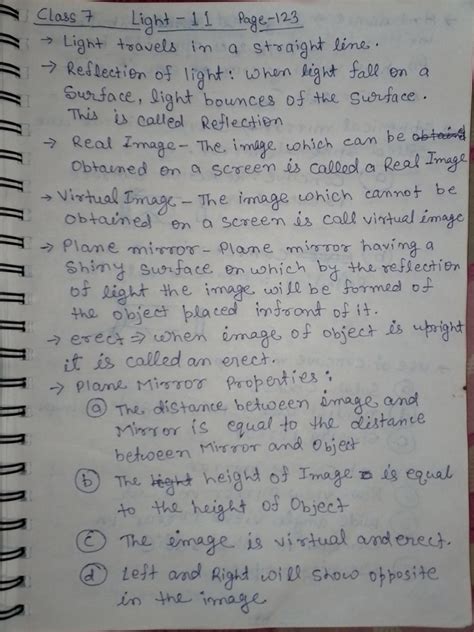 Class 7 Light - 11 Page-123
→ Light travels in a straight line.
→ Reflection of light: when light fall on a
Surface, light bounces of the surface.
This is called Reflection
→ Real Image - The image which can be obtained
Obtained on a screen is called a Real Image
→ Virtual Image - The image which cannot be
obtained on a screen is call virtual image
→ Plane mirror - Plane mirror having a
Shiny Surface on which by the reflection
of light the image will be formed of
the object placed infront of it.
→ erect ⇒ when image of object is upright
it is called an erect.
→ Plane Mirror Properties:
(a) The distance between image and
Mirror is equal to the distance
between Mirror and Object
(b) The hight height of Image is equal
to the height of Object
(c) The image is virtual and erect.
(d) Left and Right will show opposite
in the image